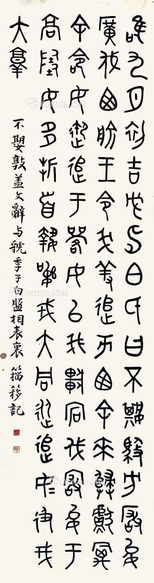 唯九月初吉戊申白氏曰不𡢁馭方厰允
廣伐西俞王令我羞追于西余來歸獻禽
余命女御追于䂮女以我車宕伐厰允于
高陶女多折首執訊戎大同從追女女彶戎
大𦎫
不𡢁敦蓋文辭与虢季子白盤相表裏 籀簃記